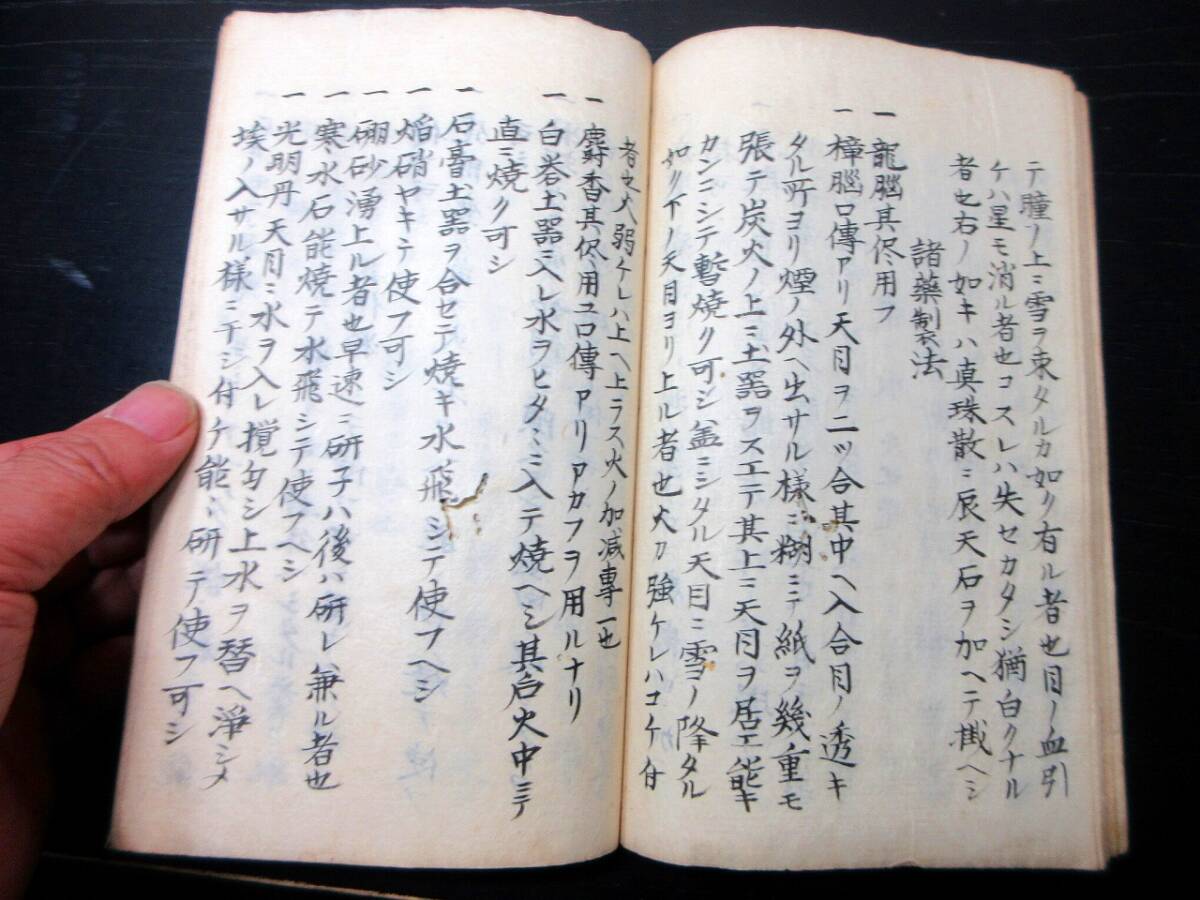 テ瞳ノ上ニ雪ヲ束タルカ如ク有ル者也目ノ血引
ケハ星モ消ル者也コスレハ失セカタシ猶白クナル
者也右ノ如キハ真珠散ニ辰天石ヲ加ヘテ掛ヘシ
諸藥製法
一龍腦其侭用フ
一樟腦口傳アリ天目ヲ二ツ合其中ヘ入合目ノ透キ
タル所ヨリ煙ノ外ヘ出サル様ニ糊ニテ紙ヲ幾重モ
張テ炭火ノ上ニ土器ヲスエテ其上ニ天目ヲ居エ能キ
カンニシテ暫焼ク可シ盖ニシタル天目ニ雪ノ降タル
如ク下ノ天目ヨリ上ル者也火カ強ケレハコケ付
者也火弱ケレハ上ヘ上ラス火ノ加减専一也
一麝香其侭用ユ口傳アリアカフヲ用ルナリ
一白礬土器ニ入レ水ヲヒタヒタニ入テ焼ヘシ其后火中ニテ
直ニ焼ク可シ
一石膏土器ヲ合セテ焼キ水飛シテ使フヘシ
一焔硝ヤキテ使フ可シ
一硼砂湧上ル者也早速ニ研子ハ後ハ研レ兼ル者也
一寒水石能焼テ水飛シテ使フヘシ
一光明丹天目ニ水ヲ入レ攪匀シ上水ヲ替ヘ淨シメ
埃ノ入サル様ニ干シ付テ能々研テ使フ可シ